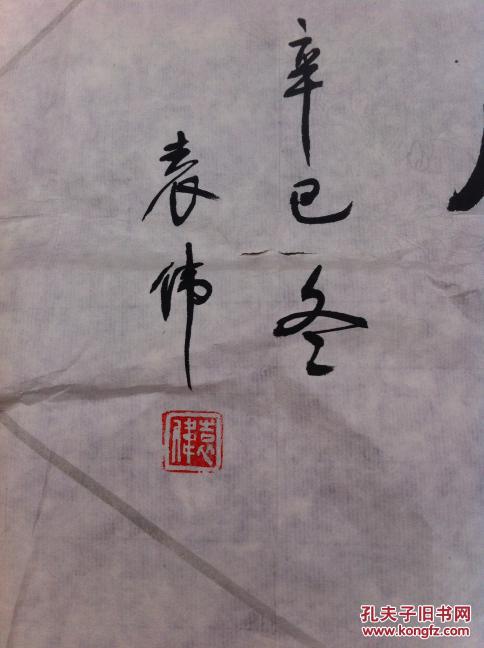 辛巳冬
袁伟
袁偉
孔夫子旧书网
www.kongfz.com